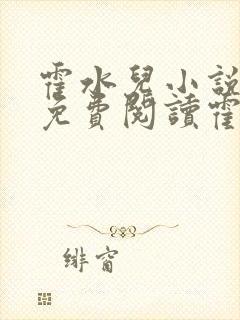 霍水兒小說
免費閱讀霍
緋窗